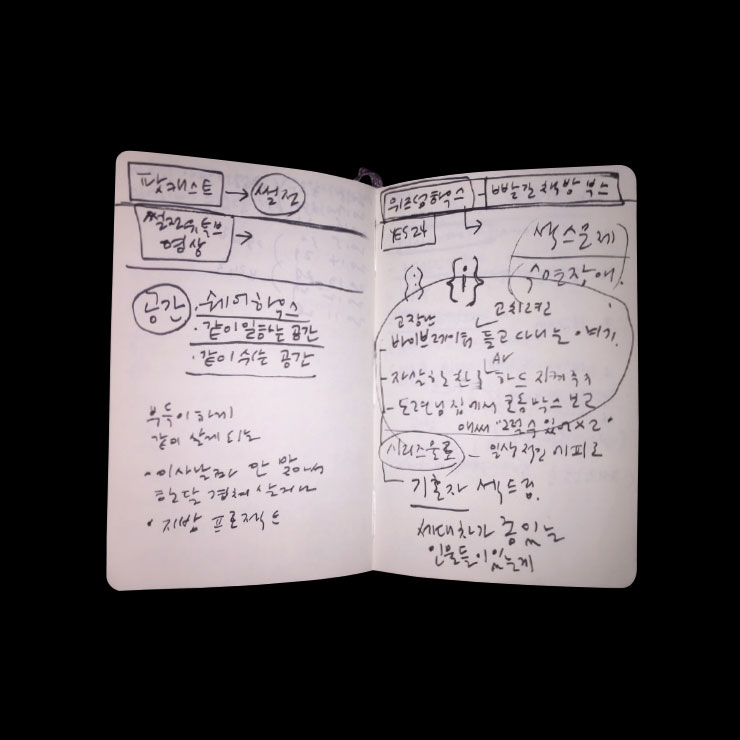 팟캐스트 → 썰전
썰전유튜브
영상 →
공간 · 쉐어하우스
· 같이 일하는 공간
· 같이 쉬는 공간
부득이하게
같이 살게 되는
· 이사날짜 안 맞아서
한달 겹쳐 살거나
· 지방 프로젝트
위즈덤하우스 - 빨간책방 부스
YES24
섹스문제
수면장애
{:} {i}
고장난 고치려고
- 바이브레이터 들고 다니는 여기.
AV
- 자살한 친구 하드 지켜주기
- 도련님 집에서 콘돔박스 보고
애써 "그럴 수 있어 ×2"
시리즈물로 - 일상적인 에피로
기혼자 섹드립.
세대차가 좀 있는
인물들이 있는게